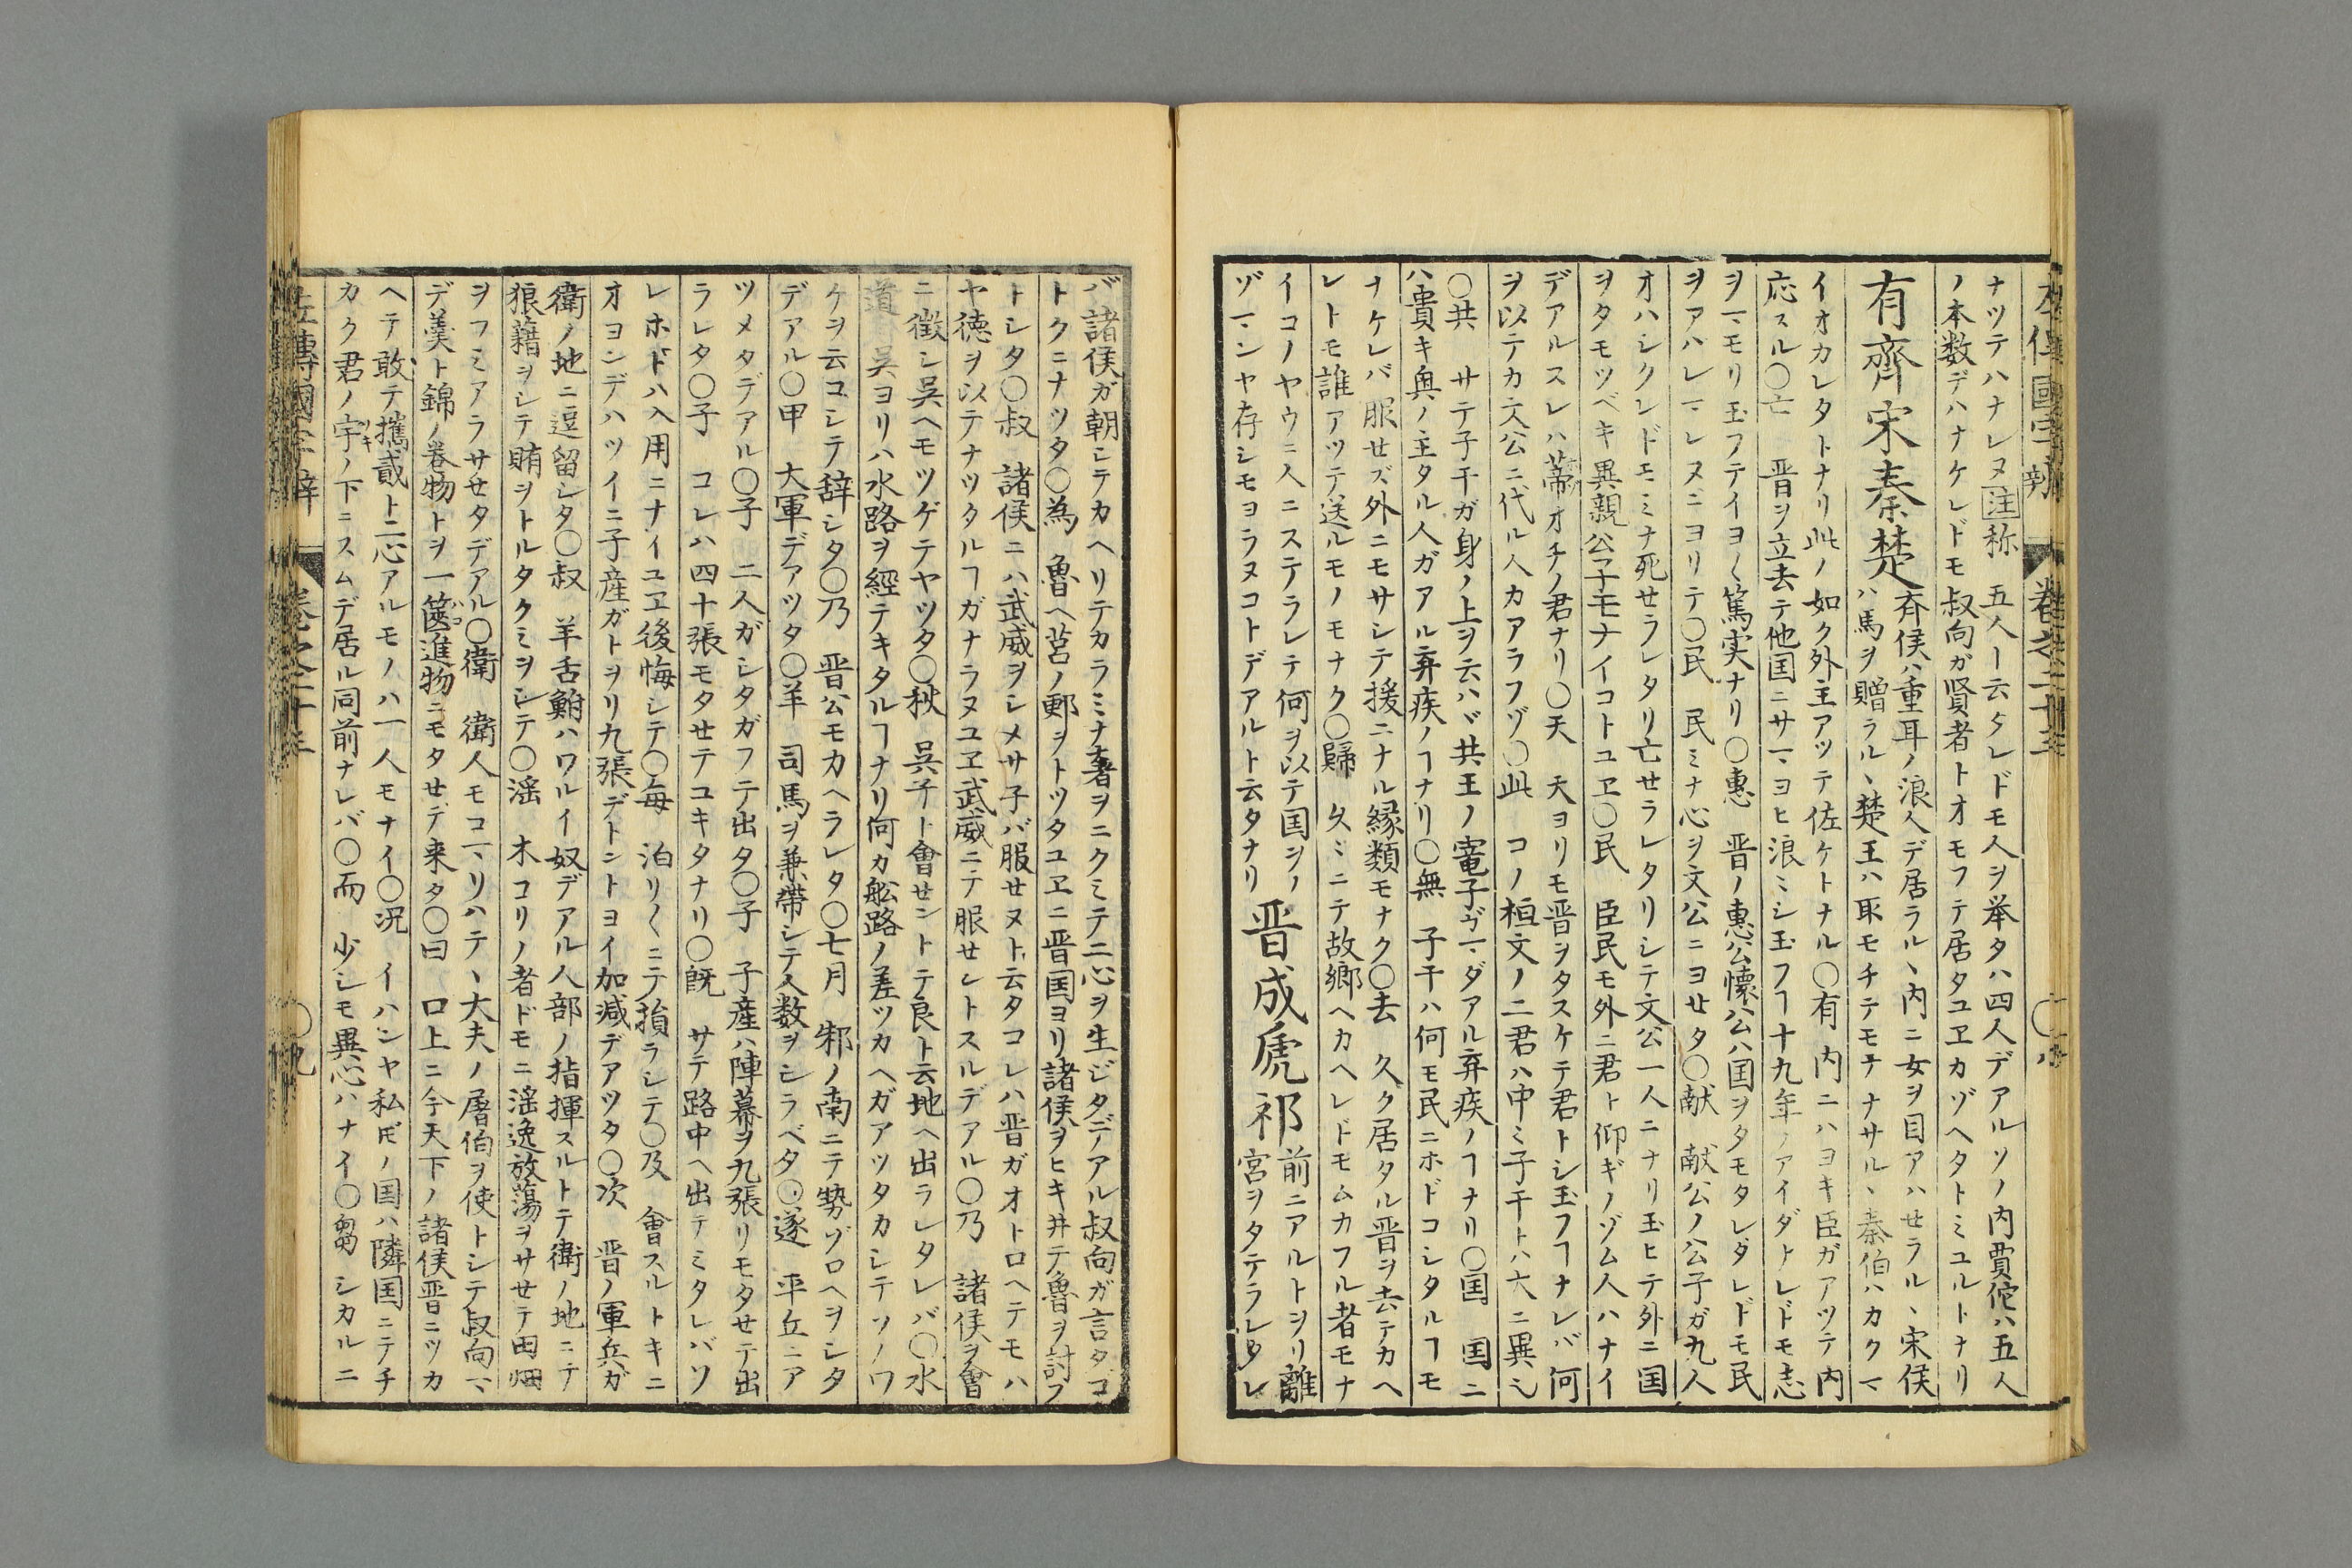 左傳國字辨 巻之二十三 〇八
ナツテハナレヌ注称 五人ト云タレドモ人ヲ挙タハ四人デアルソノ内賈佗ハ五人
ノ本数デハナケレドモ叔向ガ賢者トオモフテ居タユヱカゾヘタトミユルトナリ
有齊宋秦楚
斉侯ハ重耳ノ浪人デ居ラル、内ニ女ヲ目アハせラル、宋侯
ハ馬ヲ贈ラル、楚王ハ取モチテモテナサル、秦伯ハカクマ
イオカレタトナリ此ノ如ク外主アツテ佐ケトナル〇有 内ニハヨキ臣ガアツテ内
応スル〇亡 晋ヲ立去テ他国ニサマヨヒ浪ミシ玉フヿ十九年ノアイダトレドモ志
ヲマモリ玉フテイヨ〱篤実ナリ〇惠 晋ノ惠公懐公ハ国ヲタモタレダレドモ民
ヲアハレマレヌニヨリテ〇民 民ミナ心ヲ文公ニヨせタ〇献 献公ノ公子ガ九人
オハシクレドモミナ死せラレタリ亡せラレタリシテ文公一人ニナリ玉ヒテ外ニ国
ヲタモツベキ異親公子モナイコトユヱ〇民 臣民モ外ニ君ト仰ギノゾム人ハナイ
デアルスレハ蒂オチノ君ナリ〇天 天ヨリモ晋ヲタスケテ君トシ玉フヿナレバ何
ヲ以テカ文公ニ代ル人カアラフゾ〇此 コノ桓文ノ二君ハ中ミ子干トハ大ニ異ミ
〇共 サテ子干ガ身ノ上ヲ云ハヾ共王ノ寵子ガマダアル弃疾ノヿナリ〇国 国ニ
ハ貴キ奥ノ主タル人ガアル弃疾ノヿナリ〇無 子干ハ何モ民ニホドコシタルヿモ
ナケレバ服せズ外ニモサシテ援ニナル縁類モナク〇去 久ク居タル晋ヲ去テカヘ
レトモ誰アツテ送ルモノモナク〇歸 久ミニテ故郷ヘカヘレドモムカフル者モナ
イコノヤウニ人ニステラレテ何ヲ以テ国ヲノ
ゾマンヤ存シモヨラヌコトデアルト云タナリ
晋成虒祁
前ニアルトヲリ離
宮ヲタテラレタレ
バ諸侯ガ朝シテカヘリテカラミナ奢ヲニクミテ二心ヲ生ジタデアル叔向ガ言タゴ
トクニナツタ〇為 魯ヘ莒ノ郠ヲトツタユヱニ晋国ヨリ諸侯ヲヒキ井テ魯ヲ討フ
トシタ〇叔 諸侯ニハ武威ヲシメサ子バ服せヌト云タコレハ晋ガオトロヘテモハ
ヤ徳ヲ以テナツタルヿガナラヌユヱ武威ニテ服せシトスルデアル〇乃 諸侯ヲ會
ニ徴シ呉ヘモツゲテヤツタ〇秋 呉子ト會せントテ良ト云地ヘ出ラレタレバ〇水
道 呉ヨリハ水路ヲ經テキタルヿナリ何カ舩路ノ差ツカヘガアツタカシテソノワ
ケヲ云コシテ辞シタ〇乃 晋公モカヘラレタ〇七月 邾ノ南ニテ勢ゾロヘヲシタ
デアル〇甲 大軍デアツタ〇羊 司馬ヲ兼帶シテ人数ヲシラベタ〇遂 平丘ニア
ツメタデアル〇子 二人ガシタガフテ出タ〇子 子産ハ陣幕ヲ九張リモタせテ出
ラレタ〇子 コレハ四十張モタせテユキタナリ〇既 サテ路中ヘ出テミタレバソ
レホドハ入用ニナイユヱ後悔シテ〇毎 泊リ〱ニテ損ラシテ〇及 會スルトキニ
オヨンデハツイニ子産ガトヲリ九張デトントヨイ加減デアツタ〇次 晋ノ軍兵ガ
衛ノ地ニ逗留シタ〇叔 羊舌鮒ハワルイ奴デアル人部ノ指揮スルトテ衛ノ地ニテ
狼藉ヲシテ賄ヲトルタクミヲシテ〇滛 木コリノ者ドモニ滛逸放蕩ヲサせテ田畑
ヲフミアラサせタデアル〇衛 衛人モコマリハテ、大夫ノ屠伯ヲ使トシテ叔向マ
デ羹ト錦ノ巻物トヲ一篋進物ニモタせデ来タ〇曰 口上ニ今天下ノ諸侯晋ニツカ
ヘテ敢テ攜貳ト二心アルモノハ一人モナイ〇况 イハンヤ私𪜈ノ国ハ隣国ニテチ
カク君ノ宇ノ下ニスムデ居ル同前ナレバ〇而 少シモ異心ハナイ〇芻 シカルニ
左傳國字辨 巻之二十三 〇九